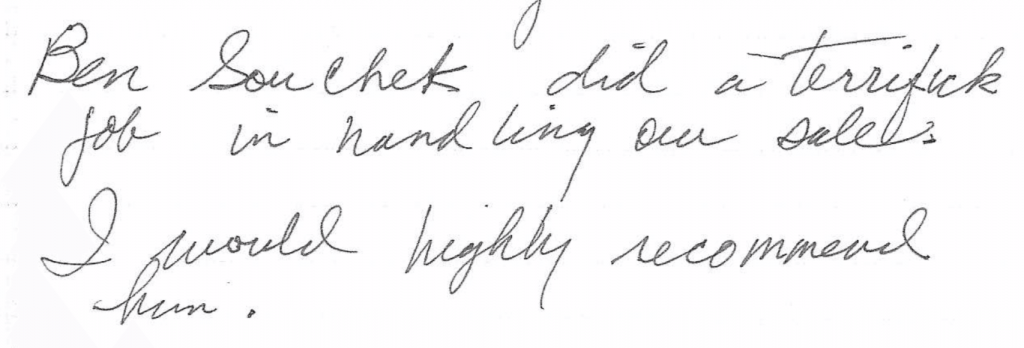 Ben Souchek did a terrifick
job in handling our sale.
I would highly recommend
him.